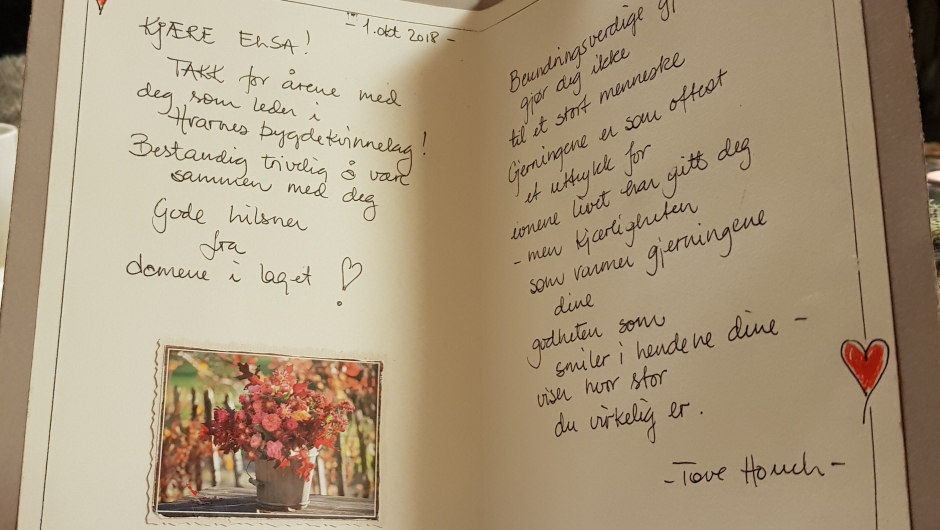 - 1. okt 2018 -
KJÆRE ELSA!
TAKK for årene med
deg som leder i
Hvarnes bygdekvinnelag!
Bestandig trivelig å være
sammen med deg
Gode hilsner
fra
damene i laget
Beundringsverdige
gjør deg ikke
til et stort menneske
Gjerningene er som oftest
et uttrykk for
evnene livet har gitt deg
- men kjærligheten
som varmer gjerningene
dine
godheten som
smiler i hendene dine -
viser hvor stor
du virkelig er.
- Tove Houck -